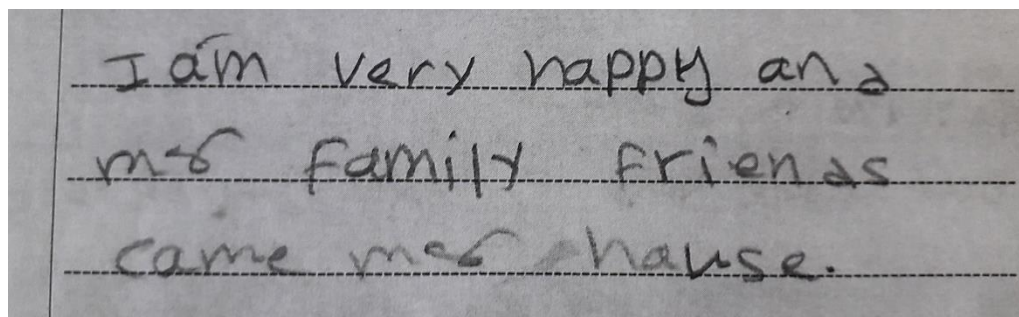 I am very happy and
mr family friends
came mer hause.